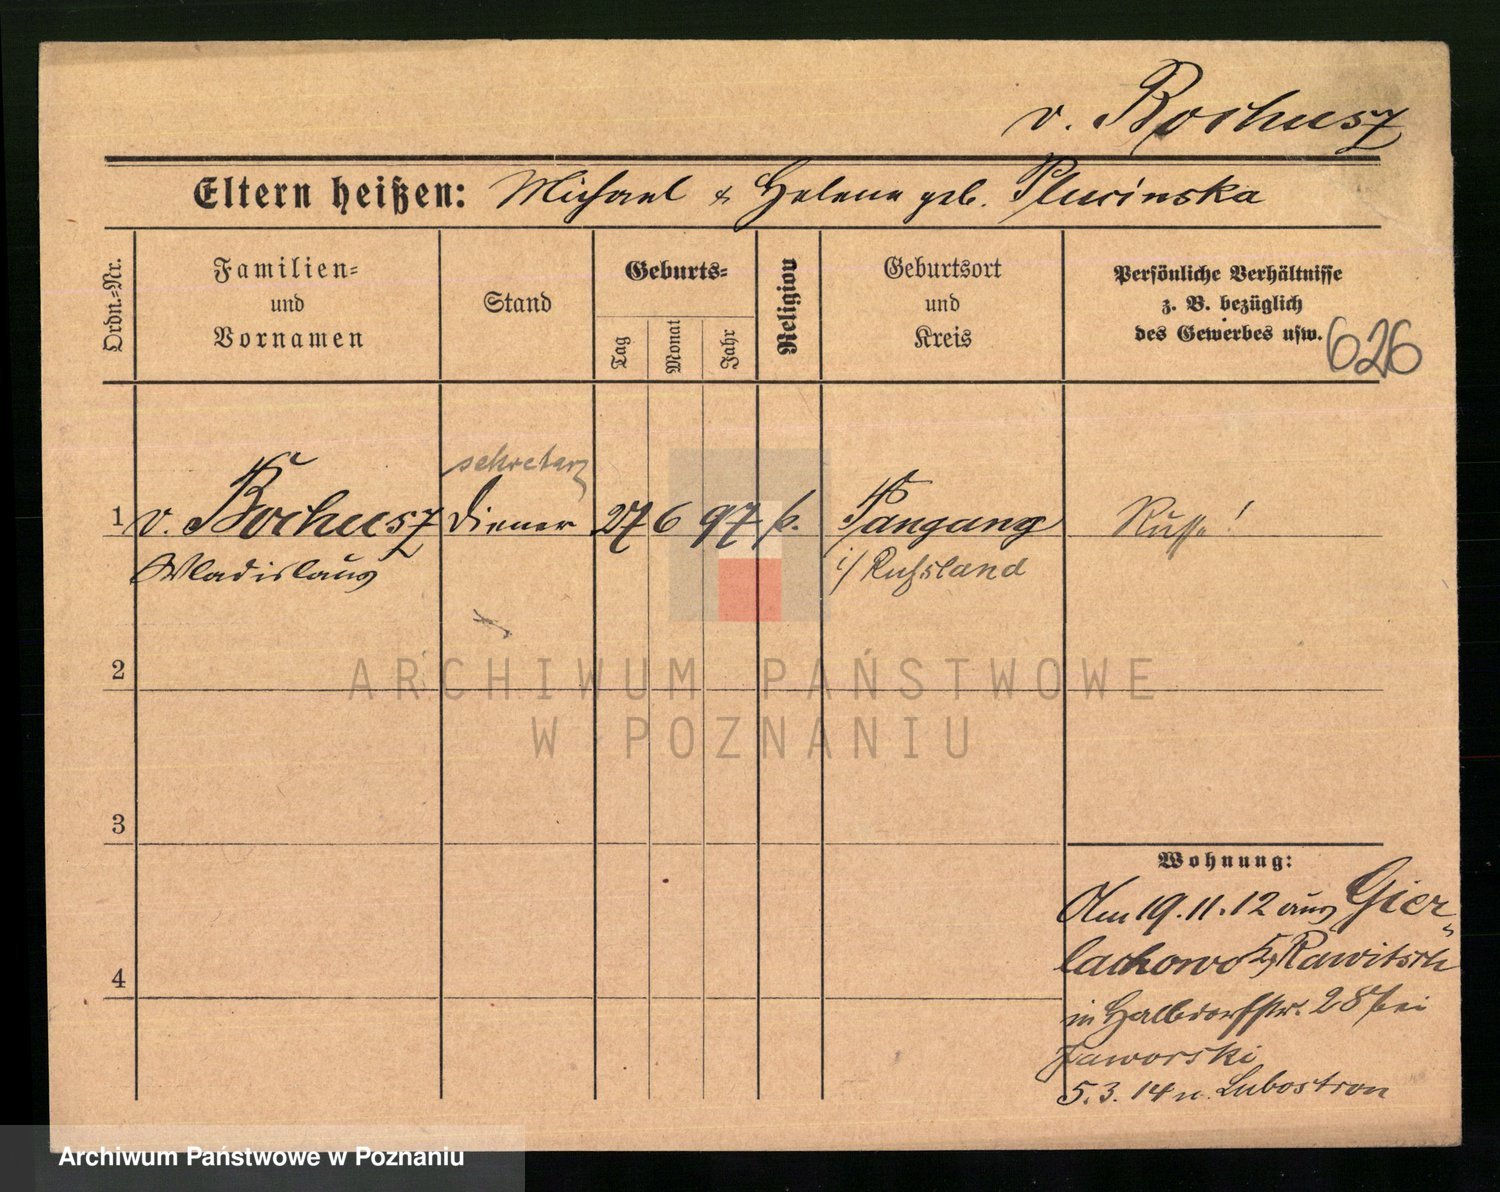 v. Bochusz
Eltern heißen: Michael & Helene geb. Plucinska
Ordn.-Nr.
Familien-
und
Vornamen
Stand
Geburts-
Tag
Monat
Jahr
Religion
Geburtsort
und
Kreis
Persönliche Verhältnisse
z. B. bezüglich
des Gewerbes usw.
626
sekretarz
1 v. Bochusz Diener 27 6 97 k. Pangang Russe!
Wladislaus i/ Rußland
2
ARCHIWUM PAŃSTWOWE
W POZNANIU
3
Wohnung:
Am 19.11.12 aus Gier-
lachowo Kr. Rawitsch
4
in Halbdorfstr. 28 bei
Jaworski
5.3.14 n. Lubostron
Archiwum Państwowe w Poznaniu